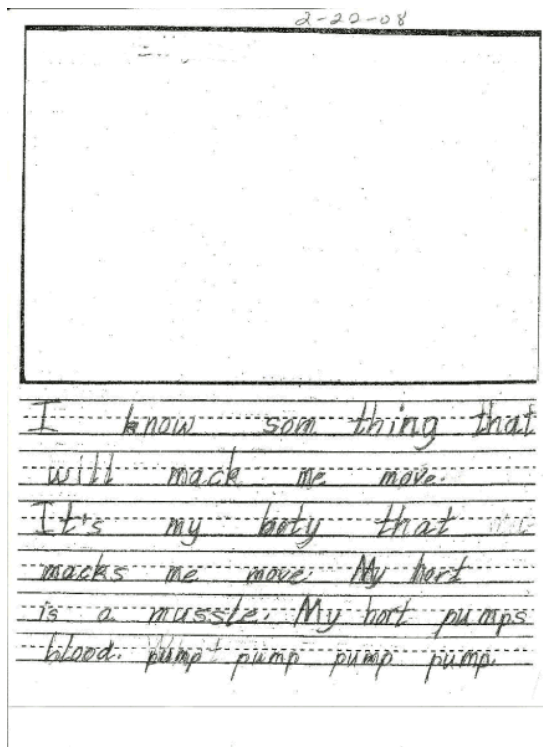 2-22-08
I know som thing that
will mack me move.
It's my boty that
macks me move. My hort
is a mussle. My hort pumps
blood. pump pump pump pump.